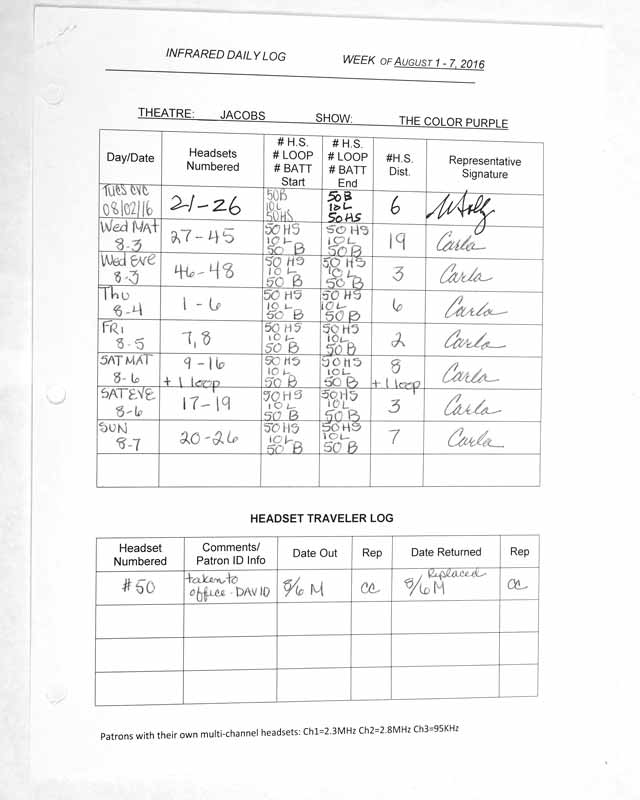 INFRARED DAILY LOG WEEK OF AUGUST 1 - 7, 2016
THEATRE: JACOBS SHOW: THE COLOR PURPLE
Day/Date Headsets Numbered # H.S. # LOOP # BATT Start # H.S. # LOOP # BATT End #H.S. Dist. Representative Signature
Tues eve 08/02/16 21-26 50B 10L 50HS 50B 10L 50HS 6
Wed MAT 8-3 27-45 50 HS 10 L 50 B 50 HS 10L 50B 19 Carla
Wed EVE 8-3 46-48 50 HS 10 L 50 B 50 HS 10L 50 B 3 Carla
Thu 8-4 1-6 50 HS 10L 50 B 50 HS 10L 50 B 6 Carla
FRI 8-5 7,8 50 HS 10L 50 B 50 HS 10L 50 B 2 Carla
SAT MAT 8-6 9-16 +1 loop 50 HS 10L 50 B 50 HS 10L 50 B 8 +1 loop Carla
SAT EVE 8-6 17-19 50 HS 10L 50 B 50HS 10L 50 B 3 Carla
SUN 8-7 20-26 50 HS 10L 50 B 50 HS 10L 50 B 7 Carla
HEADSET TRAVELER LOG
Headset Numbered Comments/ Patron ID Info Date Out Rep Date Returned Rep
#50 taken to office - DAVID 8/6 M CC Replaced 8/6 M CC
Patrons with their own multi-channel headsets: Ch1=2.3MHz Ch2=2.8MHz Ch3=95KHz